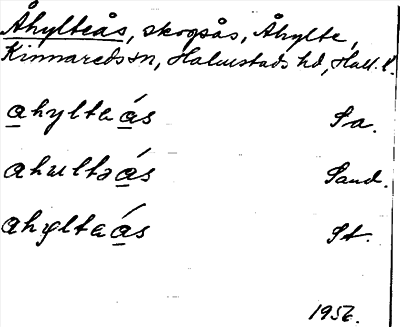 Åhylteås, skogsås, Åhylte,
Kinnareds sn, Halmstads hd, Hall. l.
ahylteás Sa.
ahultəás Sand.
ahylteás St.
1956.